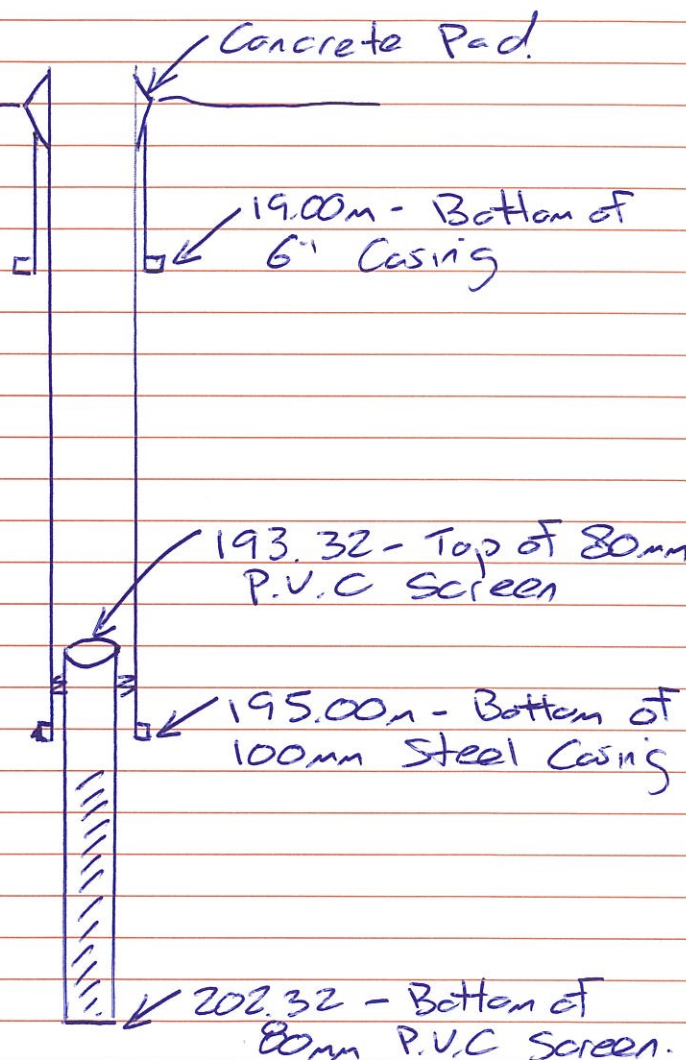 Concrete Pad.
19.00m - Bottom of
6" Casing
193.32 - Top of 80mm
P.V.C Screen
195.00m - Bottom of
100mm Steel Casing
202.32 - Bottom of
80mm P.V.C Screen.